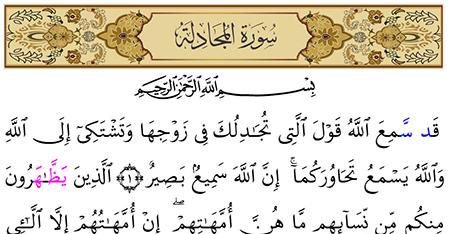 سُورَةُ المُجَادلَة
بِسْمِ ٱللَّهِ ٱلرَّحْمَٰنِ ٱلرَّحِيمِ
قَد سَّمِعَ ٱللَّهُ قَوْلَ ٱلَّتِى تُجَٰدِلُكَ فِى زَوْجِهَا وَتَشْتَكِىٓ إِلَى ٱللَّهِ
وَٱللَّهُ يَسْمَعُ تَحَاوُرَكُمَآ ۚ إِنَّ ٱللَّهَ سَمِيعٌۢ بَصِيرٌ ﴿١﴾ ٱلَّذِينَ يَظَّهَّرُونَ
مِنكُم مِّن نِّسَآئِهِم مَّا هُنَّ أُمَّهَٰتِهِمْ ۖ إِنْ أُمَّهَٰتُهُمْ إِلَّا ٱلَّٰٓـِٔى